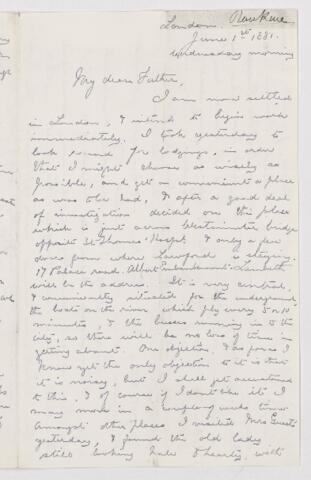 London.
June 1st 1881.
Wednesday morning
My dear Father,
I am now settled
in London, & intend to begin work
immediately. I took yesterday to
look round for lodgings, in order
that I might choose as wisely as
possible, and get as convenient a place
as was to be had, & after a good deal
of investigation decided on this place
which is just across Westminster bridge
opposite St Thomas' Hospit, & only a few
doors from where Lawford is staying.
17 Palace road. Albert Embankment. Lambeth
will be the address. It is very central,
& conveniently situated for the underground,
the boats on the river, which ply every 5 or 10
minutes, & the busses running in to the
city, so there will be no loss of time in
getting about. One objection, & as far as I
know yet the only objection to it is that
it is noisy, but I shall get accustomed
to this, & of course if I don't like it I
may move in a couple of weeks time.
Amongst other places I visited Mrs Guests
yesterday, & found the old lady
still looking hale & hearty, with